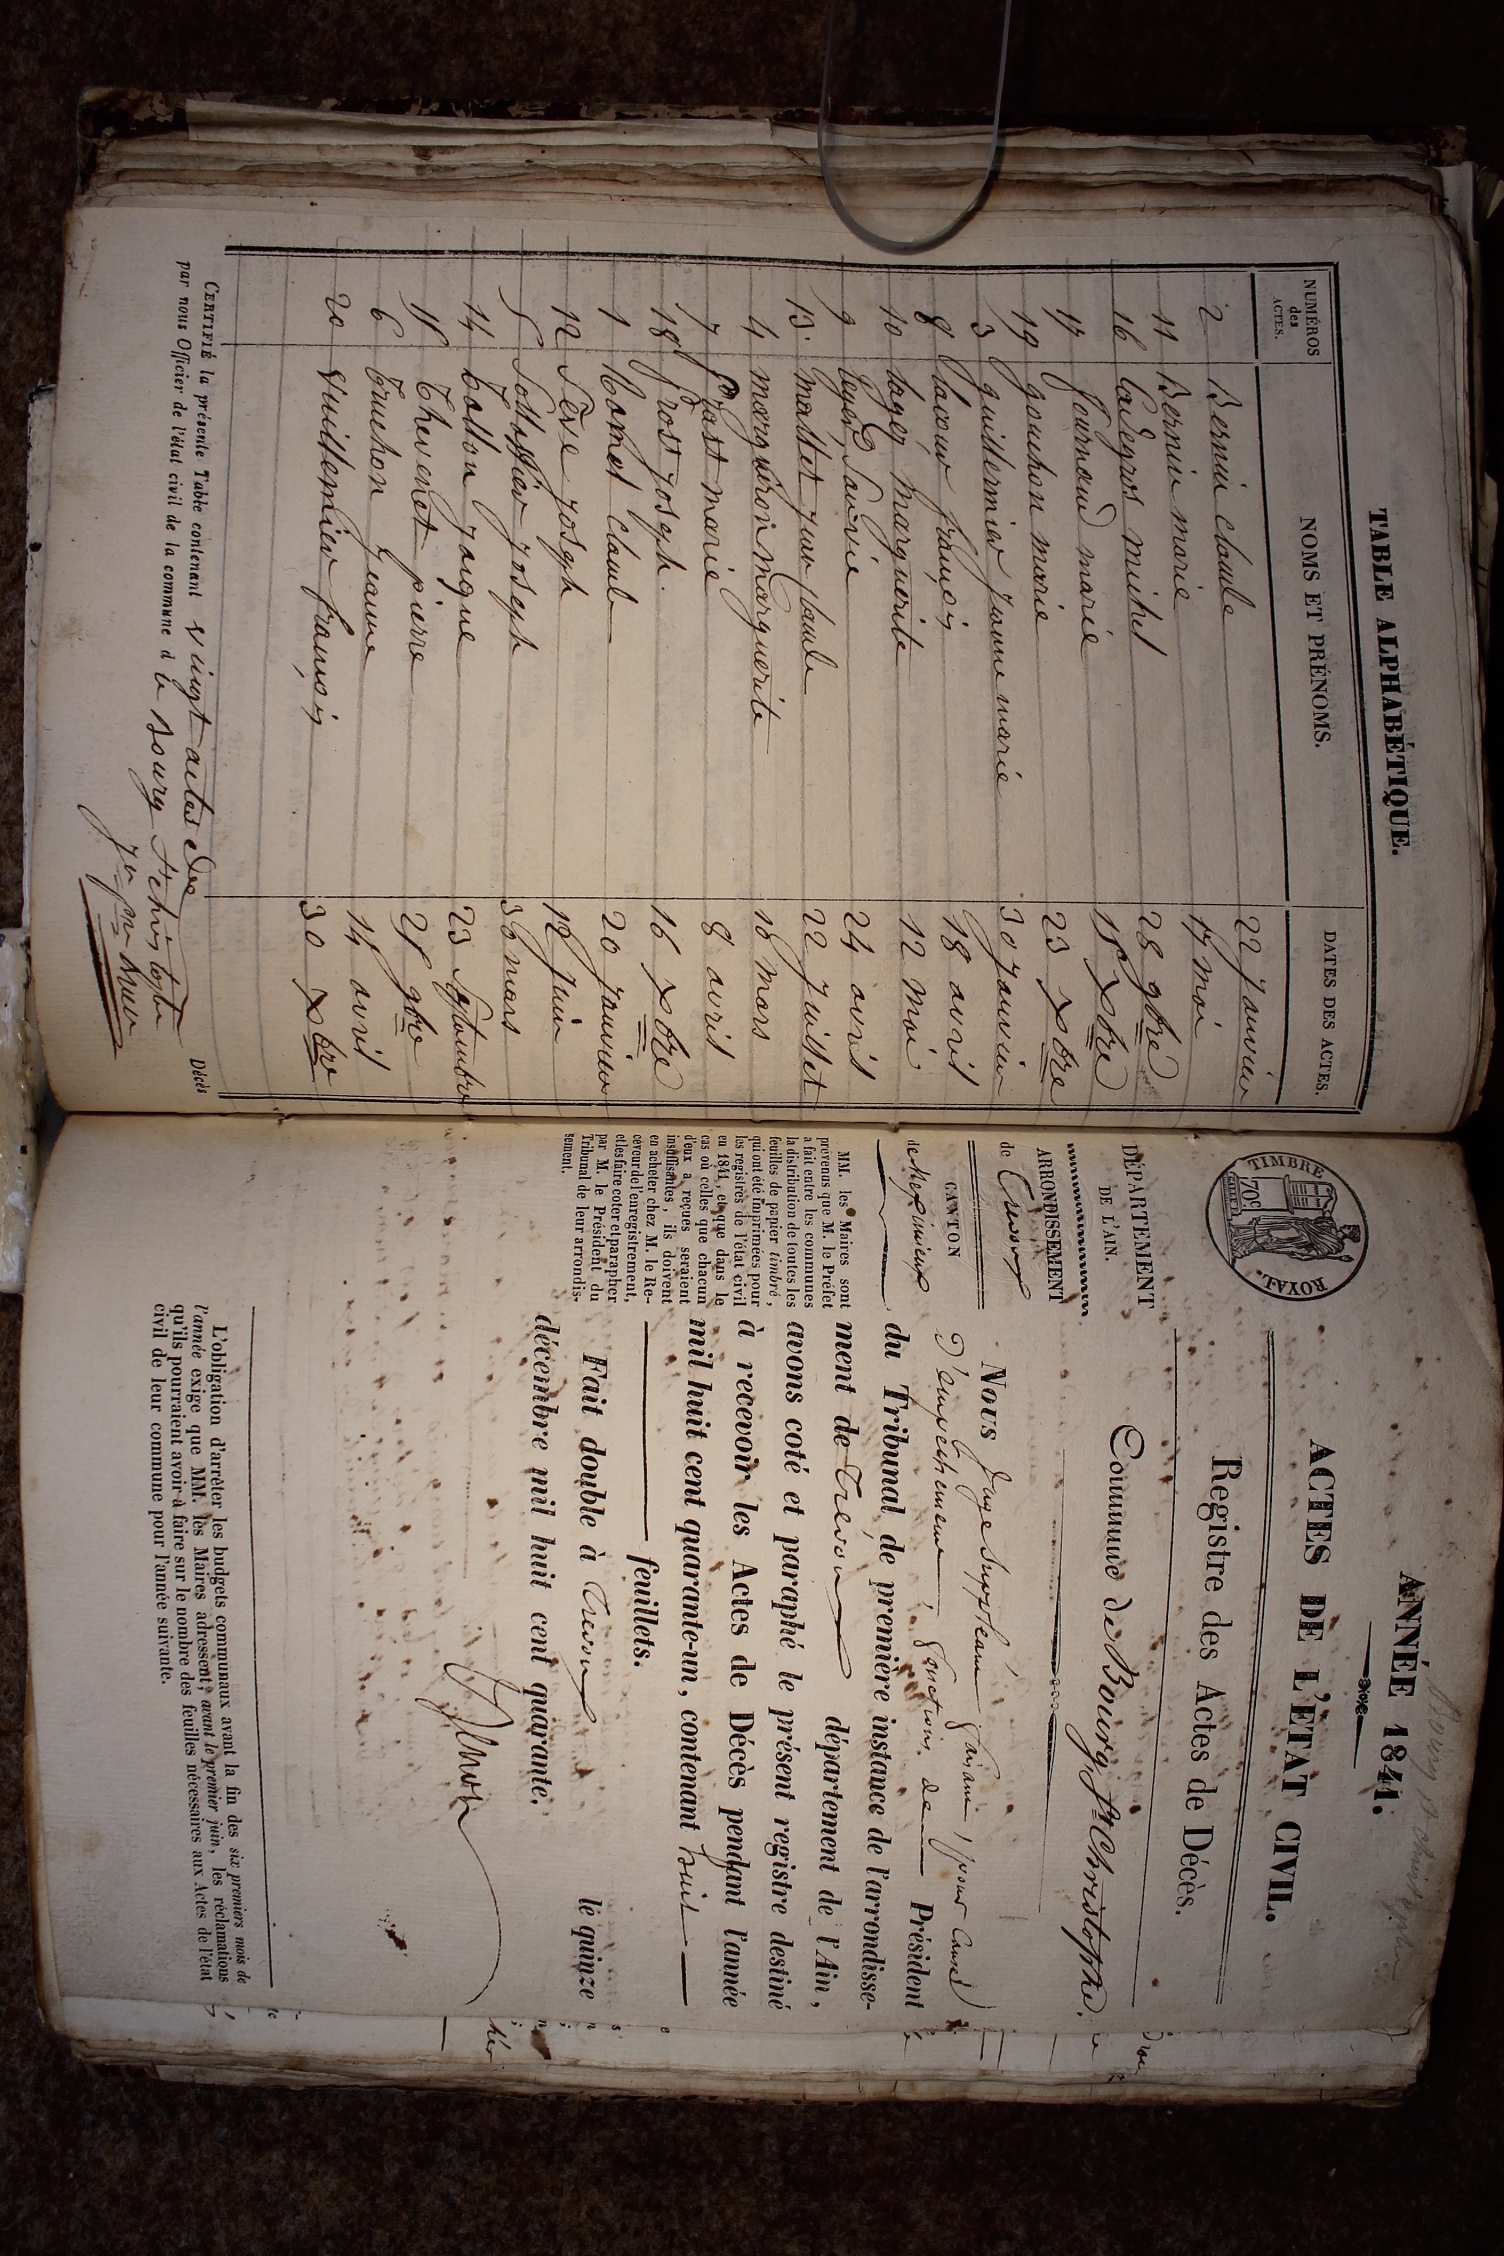 TABLE ALPHABÉTIQUE.
NUMÉROS des ACTES. NOMS ET PRÉNOMS. DATES DES ACTES.
2 Bernin claude 22 janvier
11 Bernin marie 17 mai
16 michel 28 9bre
17 fournand marie 15 Xbre
19 gouchon marie 23 Xbre
3 guillermier jeanne marie 30 janvier
8 lacour françois 18 avril
10 lager marguerite 12 mai
9 leger 24 avril
13 mallet jean claude 22 juillet
4 marguiron marguerite 18 mars
7 prost marie 8 avril
18 prost joseph. 16 Xbre
1 Romet claude 20 janvier
12 Seve joseph 12 juin
5 joseph 30 mars
14 jacque 23 Septembre
15 Thevenet pierre 25 9bre
6 Truchon jeanne 14 avril
20 Vuillermier françois 30 Xbre
CERTIFIÉ la présente Table contenant vingt actes de Décès
par nous Officier de l'état civil de la commune d e Bourg St christophe
ANNÉE 1841.
ACTES DE L'ÉTAT CIVIL.
Registre des Actes de Décès.
Commune de Bourg St Christophe.
TIMBRE ROYAL.
70c
DÉPARTEMENT
DE L'AIN.
ARRONDISSEMENT
de Trevoux
CANTON
de Meximieux
MM. les Maires sont
prévenus que M. le Préfet
a fait entre les communes
la distribution de toutes les
feuilles de papier timbré,
qui ont été imprimées pour
les registres de l'état civil
en 1841, et que dans le
cas où celles que chacun
d'eux a reçues seraient
insuffisantes, ils doivent
en acheter chez M. le Re-
ceveur de l'enregistrement,
et les faire coter et parapher
par M. le Président du
Tribunal de leur arrondis-
sement.
Nous Juge Suppléant faisant (pour cause
D'empechement) fonctions de Président
du Tribunal de première instance de l'arrondisse-
ment de Trevoux département de l'Ain,
avons coté et paraphé le présent registre destiné
à recevoir les Actes de Décès pendant l'année
mil huit cent quarante-un, contenant huit
feuillets.
Fait double à Trevoux le quinze
décembre mil huit cent quarante.
L'obligation d'arrêter les budgets communaux avant la fin des six premiers mois de
l'année exige que MM. les Maires adressent, avant le premier juin, les réclamations
qu'ils pourraient avoir à faire sur le nombre des feuilles nécessaires aux Actes de l'état
civil de leur commune pour l'année suivante.